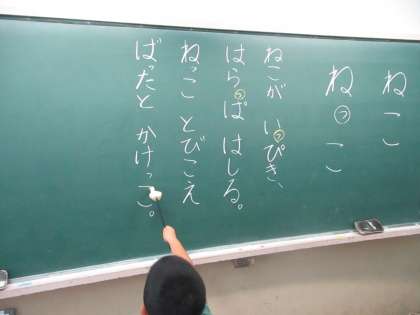 ねこ
ねっこ
ねこが いっぴき、
はらっぱ はしる。
ねっこ とびこえ
ばったと かけっこ。